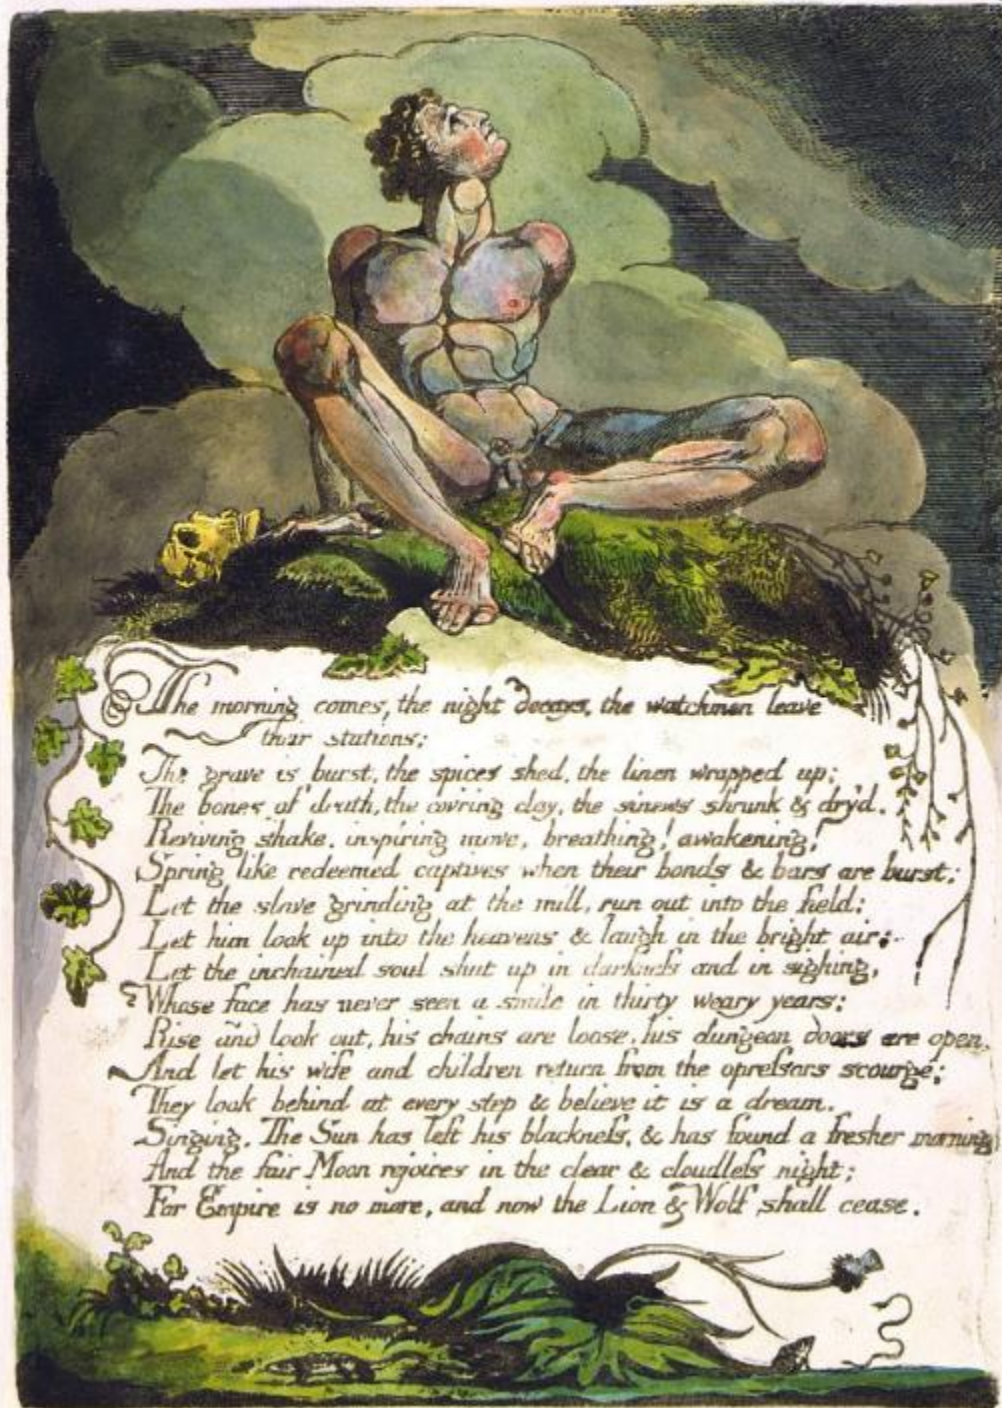 The morning comes, the night decays, the watchmen leave
their stations;
The grave is burst, the spices shed, the linen wrapped up;
The bones of death, the cov'ring clay, the sinews shrunk & dry'd.
Reviving shake, inspiring move, breathing! awakening!
Spring like redeemed captives when their bonds & bars are burst;
Let the slave grinding at the mill, run out into the field:
Let him look up into the heavens & laugh in the bright air;
Let the inchained soul shut up in darkneſs and in sighing,
Whose face has never seen a smile in thirty weary years;
Rise and look out, his chains are loose, his dungeon doors are open.
And let his wife and children return from the opreſsors scourge;
They look behind at every step & believe it is a dream.
Singing. The Sun has left his blackneſs, & has found a fresher morning
And the fair Moon rejoices in the clear & cloudleſs night;
For Empire is no more, and now the Lion & Wolf shall cease.